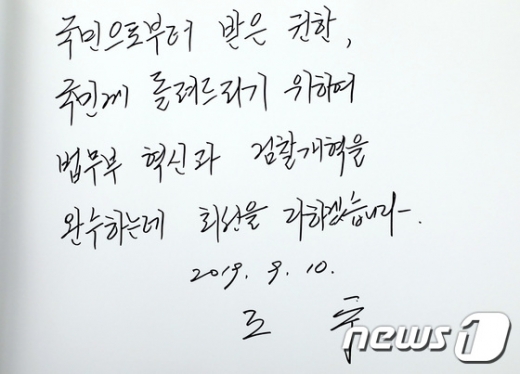 국민으로부터 받은 권한,
국민께 돌려드리기 위하여
법무부 혁신과 검찰개혁을
완수하는데 최선을 다하겠습니다.
2019. 9. 10.
조
news1